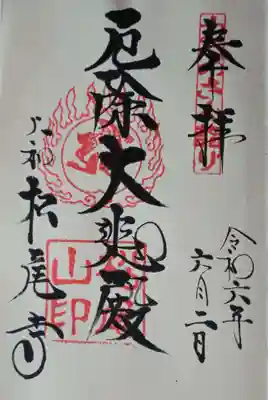 奉拝
令和六年
六月二日
厄除大悲殿
大和松尾寺
山印